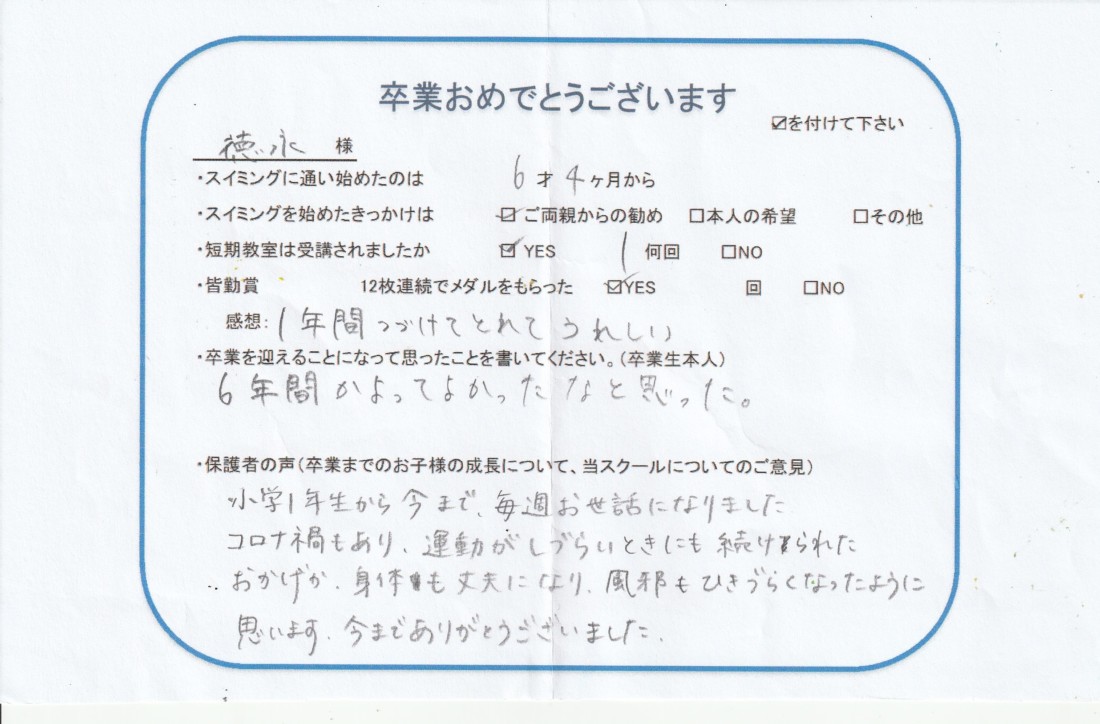 卒業おめでとうございます
☑を付けて下さい
徳永 様
・スイミングに通い始めたのは 6才4ヶ月から
・スイミングを始めたきっかけは ☑ご両親からの勧め □本人の希望 □その他
・短期教室は受講されましたか ☑YES 1何回 □NO
・皆勤賞 12枚連続でメダルをもらった ☑YES 回 □NO
感想:1年間つづけてとれてうれしい
・卒業を迎えることになって思ったことを書いてください。(卒業生本人)
6年間かよってよかったなと思った。
・保護者の声(卒業までのお子様の成長について、当スクールについてのご意見)
小学1年生から今まで、毎週お世話になりました
コロナ禍もあり、運動がしづらいときにも続けられた
おかげか、身体も丈夫になり、風邪もひきづらくなったように
思います。今までありがとうございました。